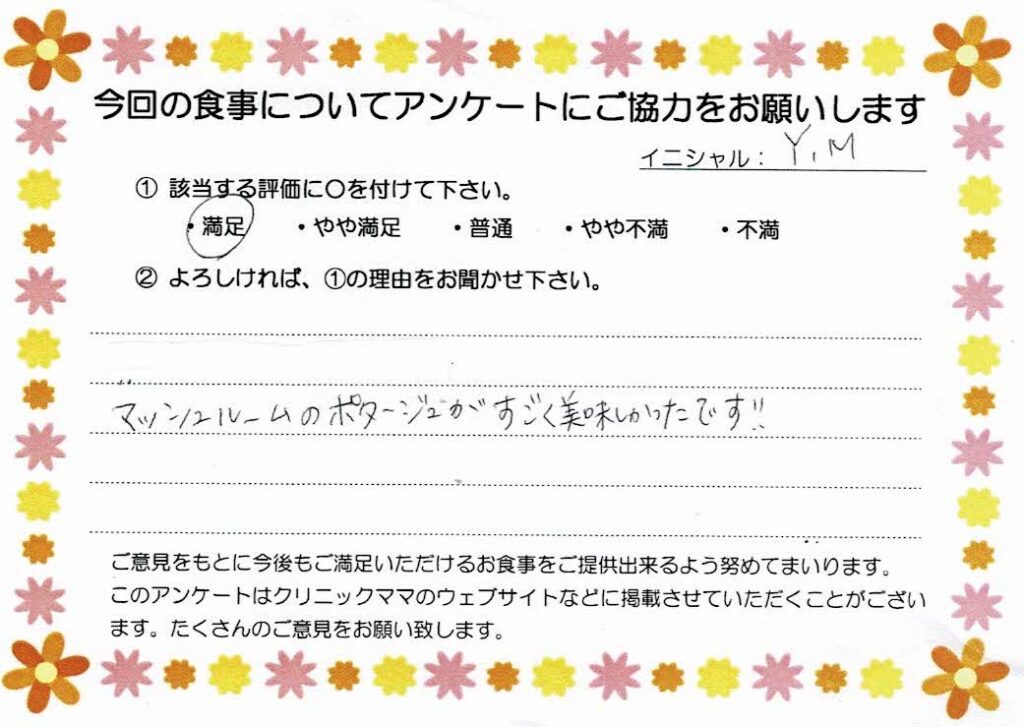 今回の食事についてアンケートにご協力をお願いします
イニシャル： Y, M
① 該当する評価に〇を付けて下さい。
・満足 ・やや満足 ・普通 ・やや不満 ・不満
② よろしければ、①の理由をお聞かせ下さい。
マッシュルームのポタージュがすごく美味しかったです!!
ご意見をもとに今後もご満足いただけるお食事をご提供出来るよう努めてまいります。
このアンケートはクリニックママのウェブサイトなどに掲載させていただくことがござい
ます。たくさんのご意見をお願い致します。